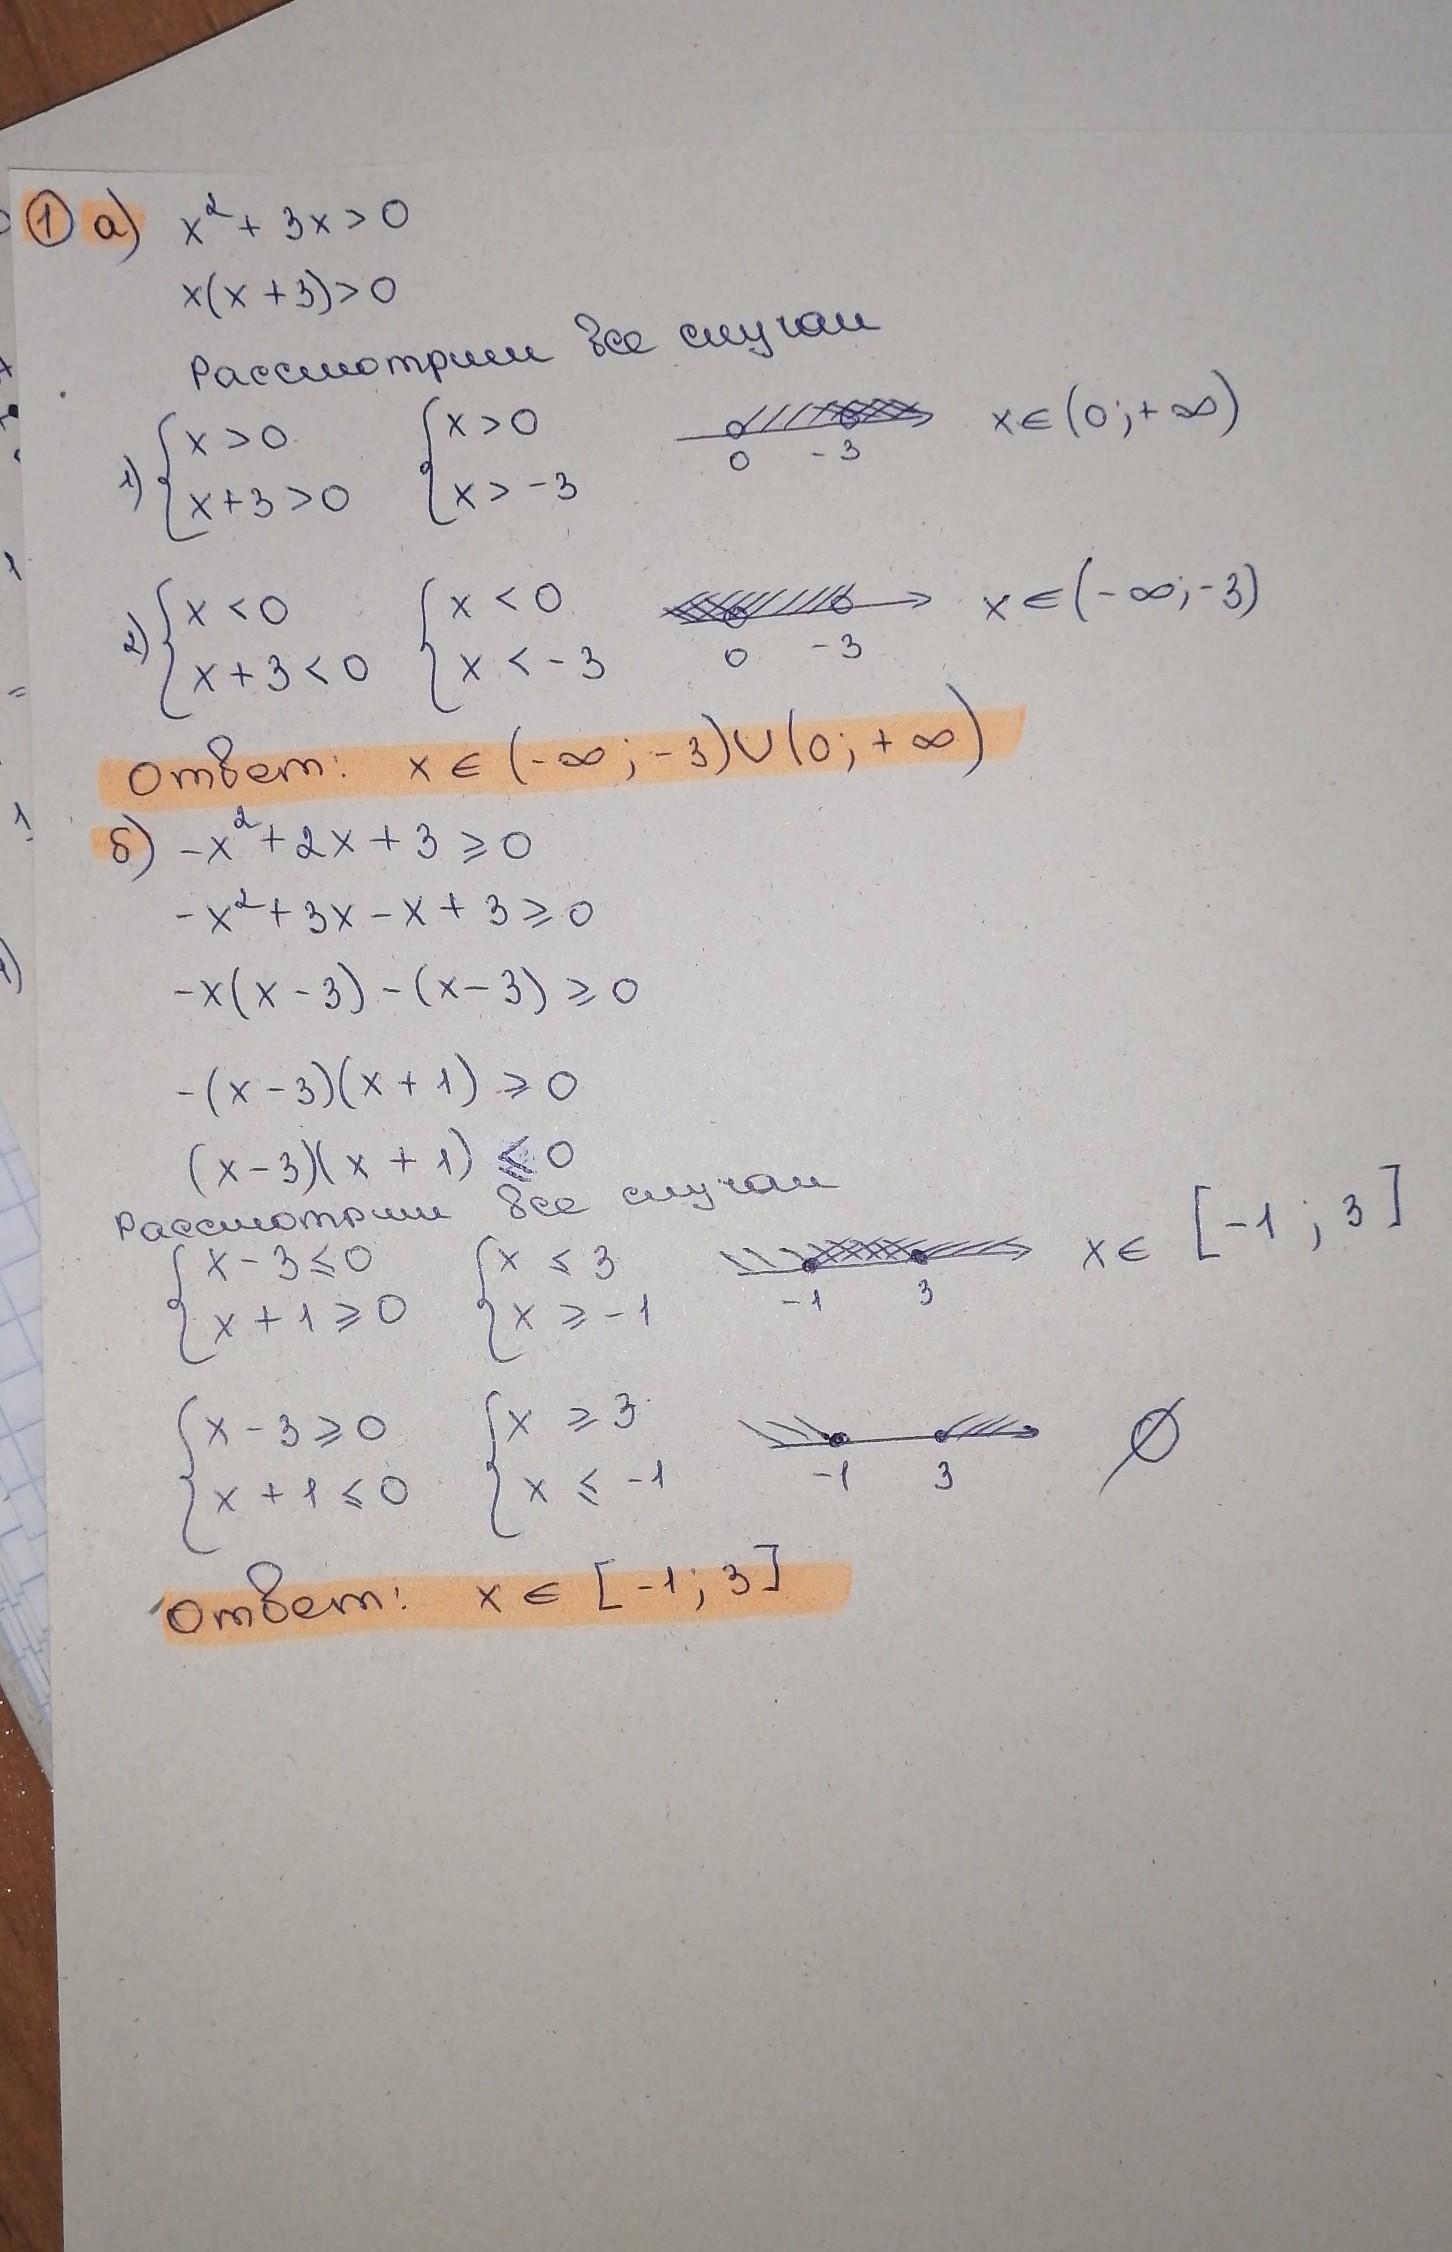 ① а) x² + 3x > 0
x(x + 3) > 0
Рассмотрим все случаи
1) { x > 0 { x > 0 x ∈ (0; + ∞)
x + 3 > 0 x > -3 0 -3
2) { x < 0 { x < 0 x ∈ (-∞; -3)
x + 3 < 0 x < -3 0 -3
Ответ: x ∈ (-∞; -3) ∪ (0; + ∞)
б) -x² + 2x + 3 ⩾ 0
-x² + 3x - x + 3 ⩾ 0
-x(x - 3) - (x - 3) ⩾ 0
-(x - 3)(x + 1) ⩾ 0
(x - 3)(x + 1) ⩽ 0
Рассмотрим все случаи
{ x - 3 ⩽ 0 { x ⩽ 3 x ∈ [-1; 3]
x + 1 ⩾ 0 x ⩾ -1 -1 3
{ x - 3 ⩾ 0 { x ⩾ 3 ∅
x + 1 ⩽ 0 x ⩽ -1 -1 3
Ответ: x ∈ [-1; 3]